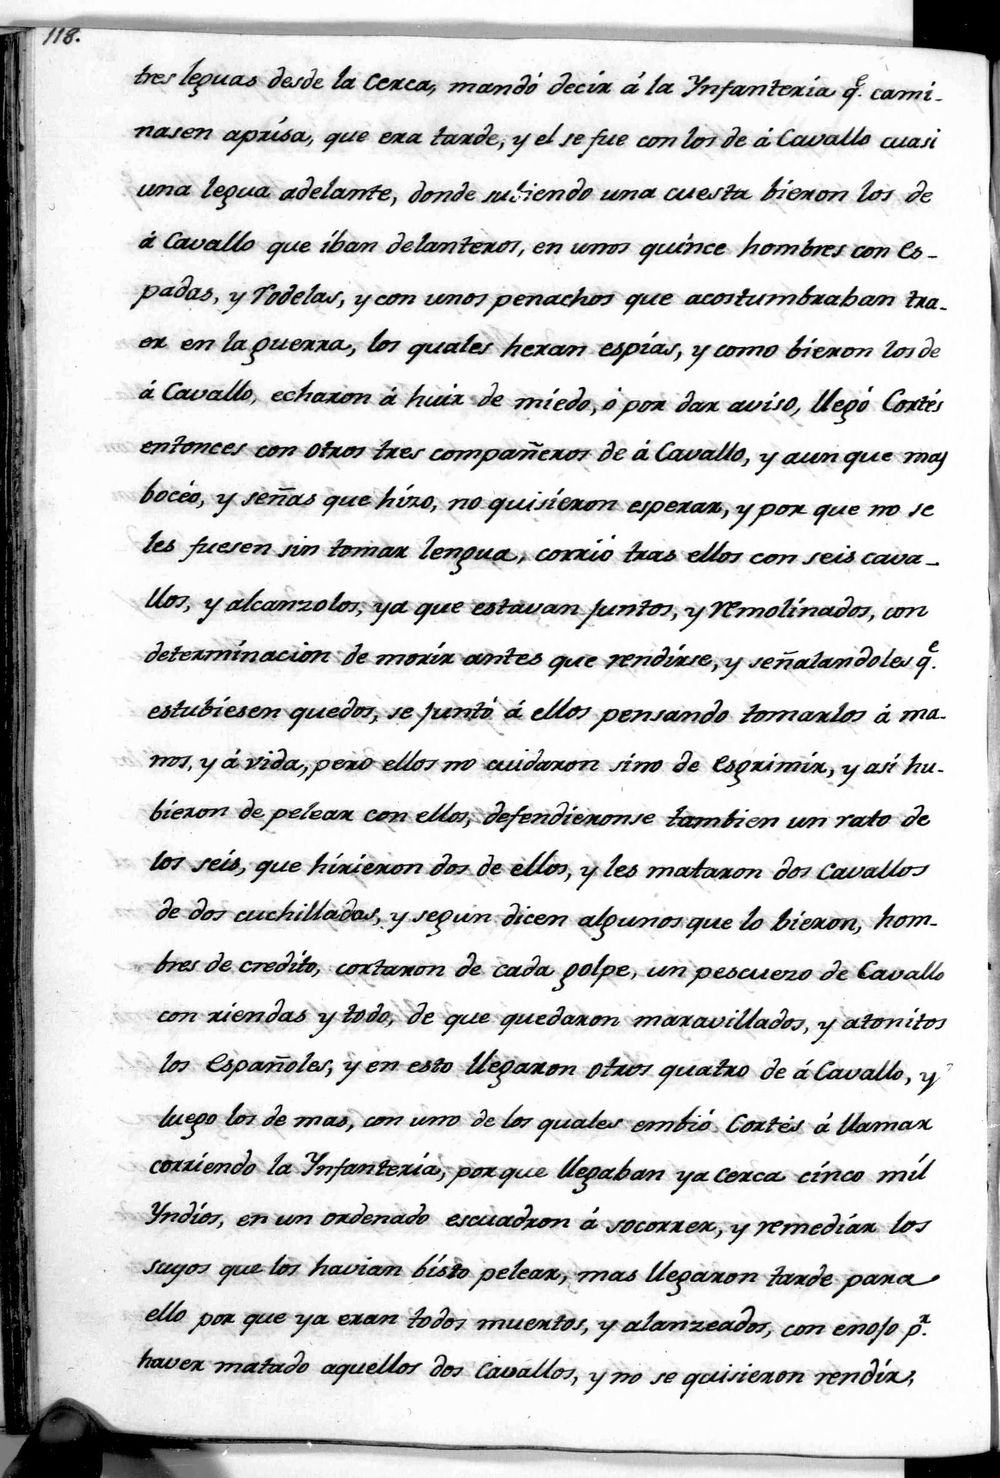 118.
tres leguas desde la Cerca, mandó decir á la Ynfanteria q.e cami-
nasen aprisa, que era tarde, y el se fue con los de á Cavallo cuasi
una legua adelante, donde subiendo una cuesta bieron los de
á Cavallo que iban delanteros, en unos quince hombres con Es-
padas, y Rodelas, y con unos penachos que acostumbraban tra-
er en la guerra, los quales heran espías, y como bieron los de
á Cavallo, echaron á huir de miedo, ó por dar aviso, llegó Cortés
entonces con otros tres compañeros de á Cavallo, y aun que mas
bocéo, y señas que hizo, no quisieron esperar, y por que no se
les fuesen sin tomar lengua, corrió tras ellos con seis cava-
llos, y alcanzolos, ya que estavan juntos, y remolinados, con
determinacion de morir antes que rendirse, y señalandoles q.e
estubiesen quedos, se juntó á ellos pensando tomarlos á ma-
nos, y á vida, pero ellos no cuidaron sino de Esgrimir, y asi hu-
bieron de pelear con ellos, defendieronse tambien un rato de
los seis, que hirieron dos de ellos, y les mataron dos Cavallos
de dos cuchilladas, y segun dicen algunos que lo bieron, hom-
bres de credito, cortaron de cada golpe, un pescuezo de Cavallo
con riendas y todo, de que quedaron maravillados, y atonitos
los Españoles, y en esto llegaron otros quatro de á Cavallo, y
luego los de mas, con uno de los quales embió Cortés á llamar
corriendo la Ynfanteria, por que llegaban ya cerca cinco mil
Yndios, en un ordenado escuadron á socorrer, y remediar los
suyos que los havian bisto pelear, mas llegaron tarde para
ello por que ya eran todos muertos, y alanzeados, con enojo p.r
haver matado aquellos dos Cavallos, y no se quisieron rendir,